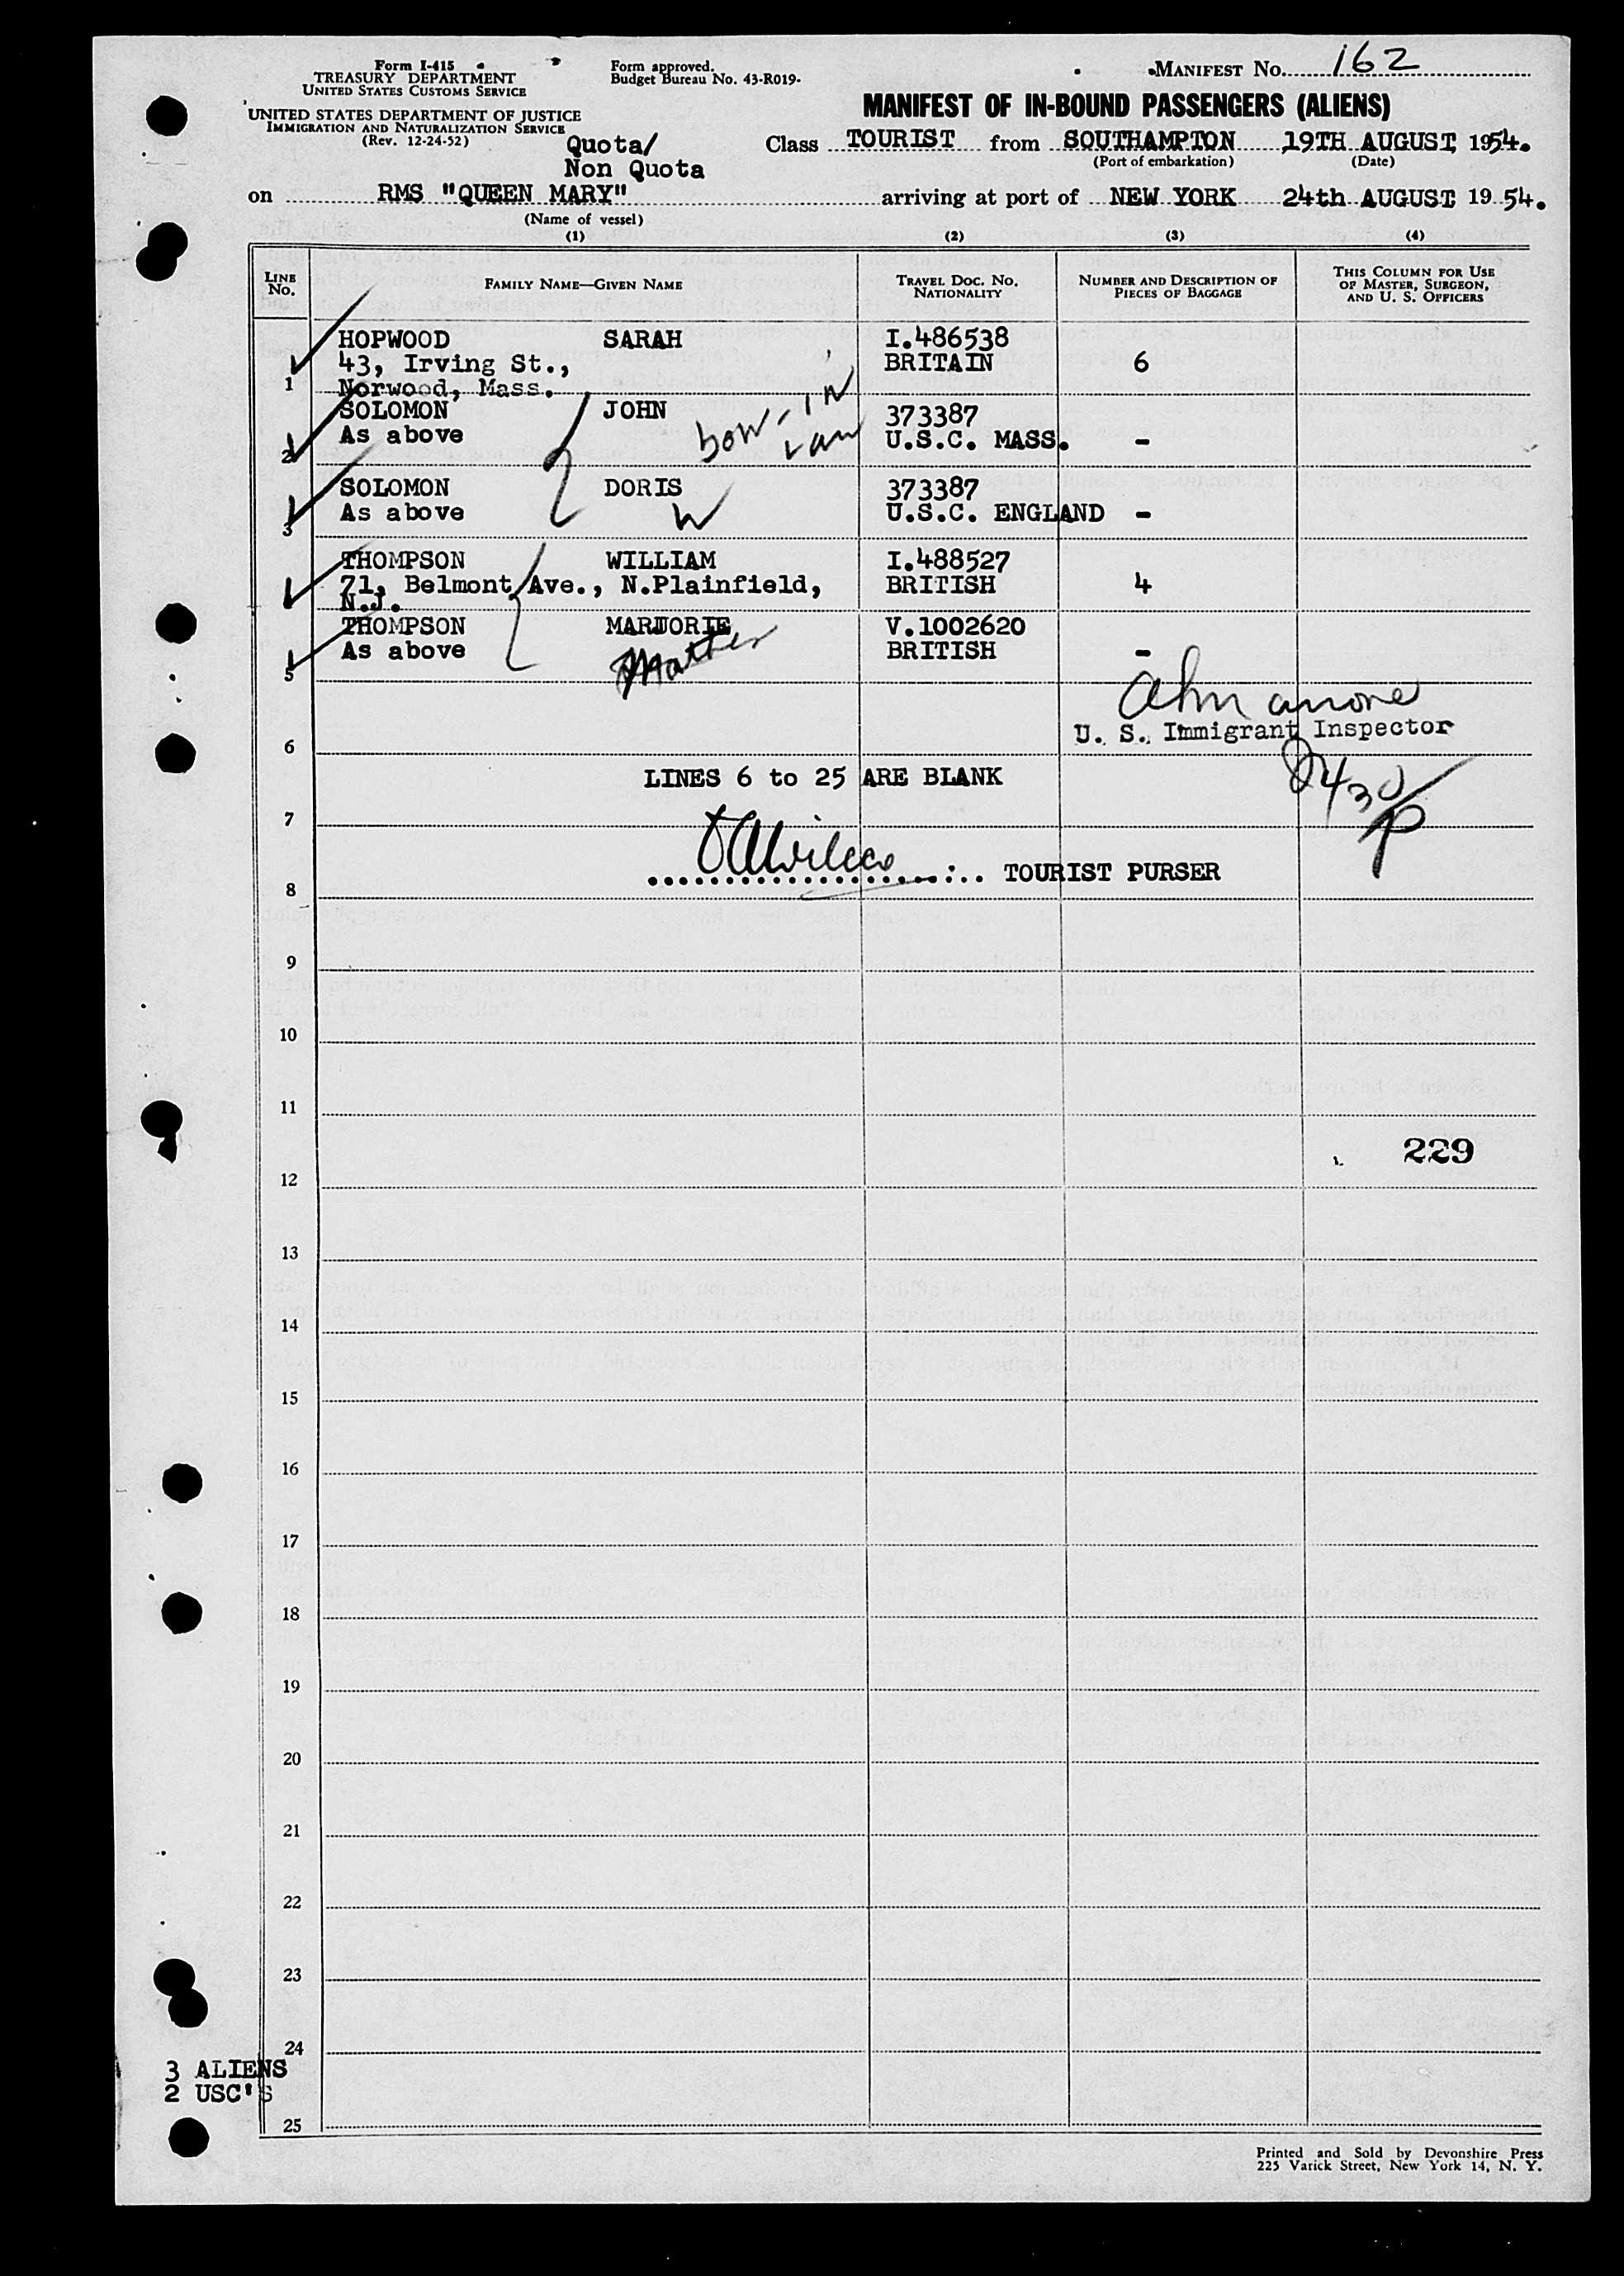 Form I-415
TREASURY DEPARTMENT
UNITED STATES CUSTOMS SERVICE
UNITED STATES DEPARTMENT OF JUSTICE
IMMIGRATION AND NATURALIZATION SERVICE
(Rev. 12-24-52)
Form approved.
Budget Bureau No. 43-R019-
MANIFEST No. 162
MANIFEST OF IN-BOUND PASSENGERS (ALIENS)
Quota/
Non Quota
Class TOURIST from SOUTHAMPTON 19TH AUGUST 1954.
(Port of embarkation) (Date)
on RMS "QUEEN MARY" arriving at port of NEW YORK 24th AUGUST 1954.
(Name of vessel)
(1) (2) (3) (4)
LINE No. FAMILY NAME—GIVEN NAME TRAVEL DOC. NO. NATIONALITY NUMBER AND DESCRIPTION OF PIECES OF BAGGAGE THIS COLUMN FOR USE OF MASTER, SURGEON, AND U. S. OFFICERS
HOPWOOD SARAH I.486538
43, Irving St., BRITAIN 6
1 Norwood, Mass.
SOLOMON JOHN 373387
2 As above U.S.C. MASS. -
in
law
SOLOMON DORIS 373387
3 As above W U.S.C. ENGLAND -
THOMPSON WILLIAM I.488527
71, Belmont Ave., N.Plainfield, BRITISH 4
N.J.
THOMPSON MARJORIE V.1002620
As above BRITISH -
5 Mother
U. S. Immigrant Inspector
6
LINES 6 to 25 ARE BLANK
7
TOURIST PURSER
8
9
10
11
229
12
13
14
15
16
17
18
19
20
21
22
23
24
3 ALIENS
2 USC'S
25
Printed and Sold by Devonshire Press
225 Varick Street, New York 14, N. Y.